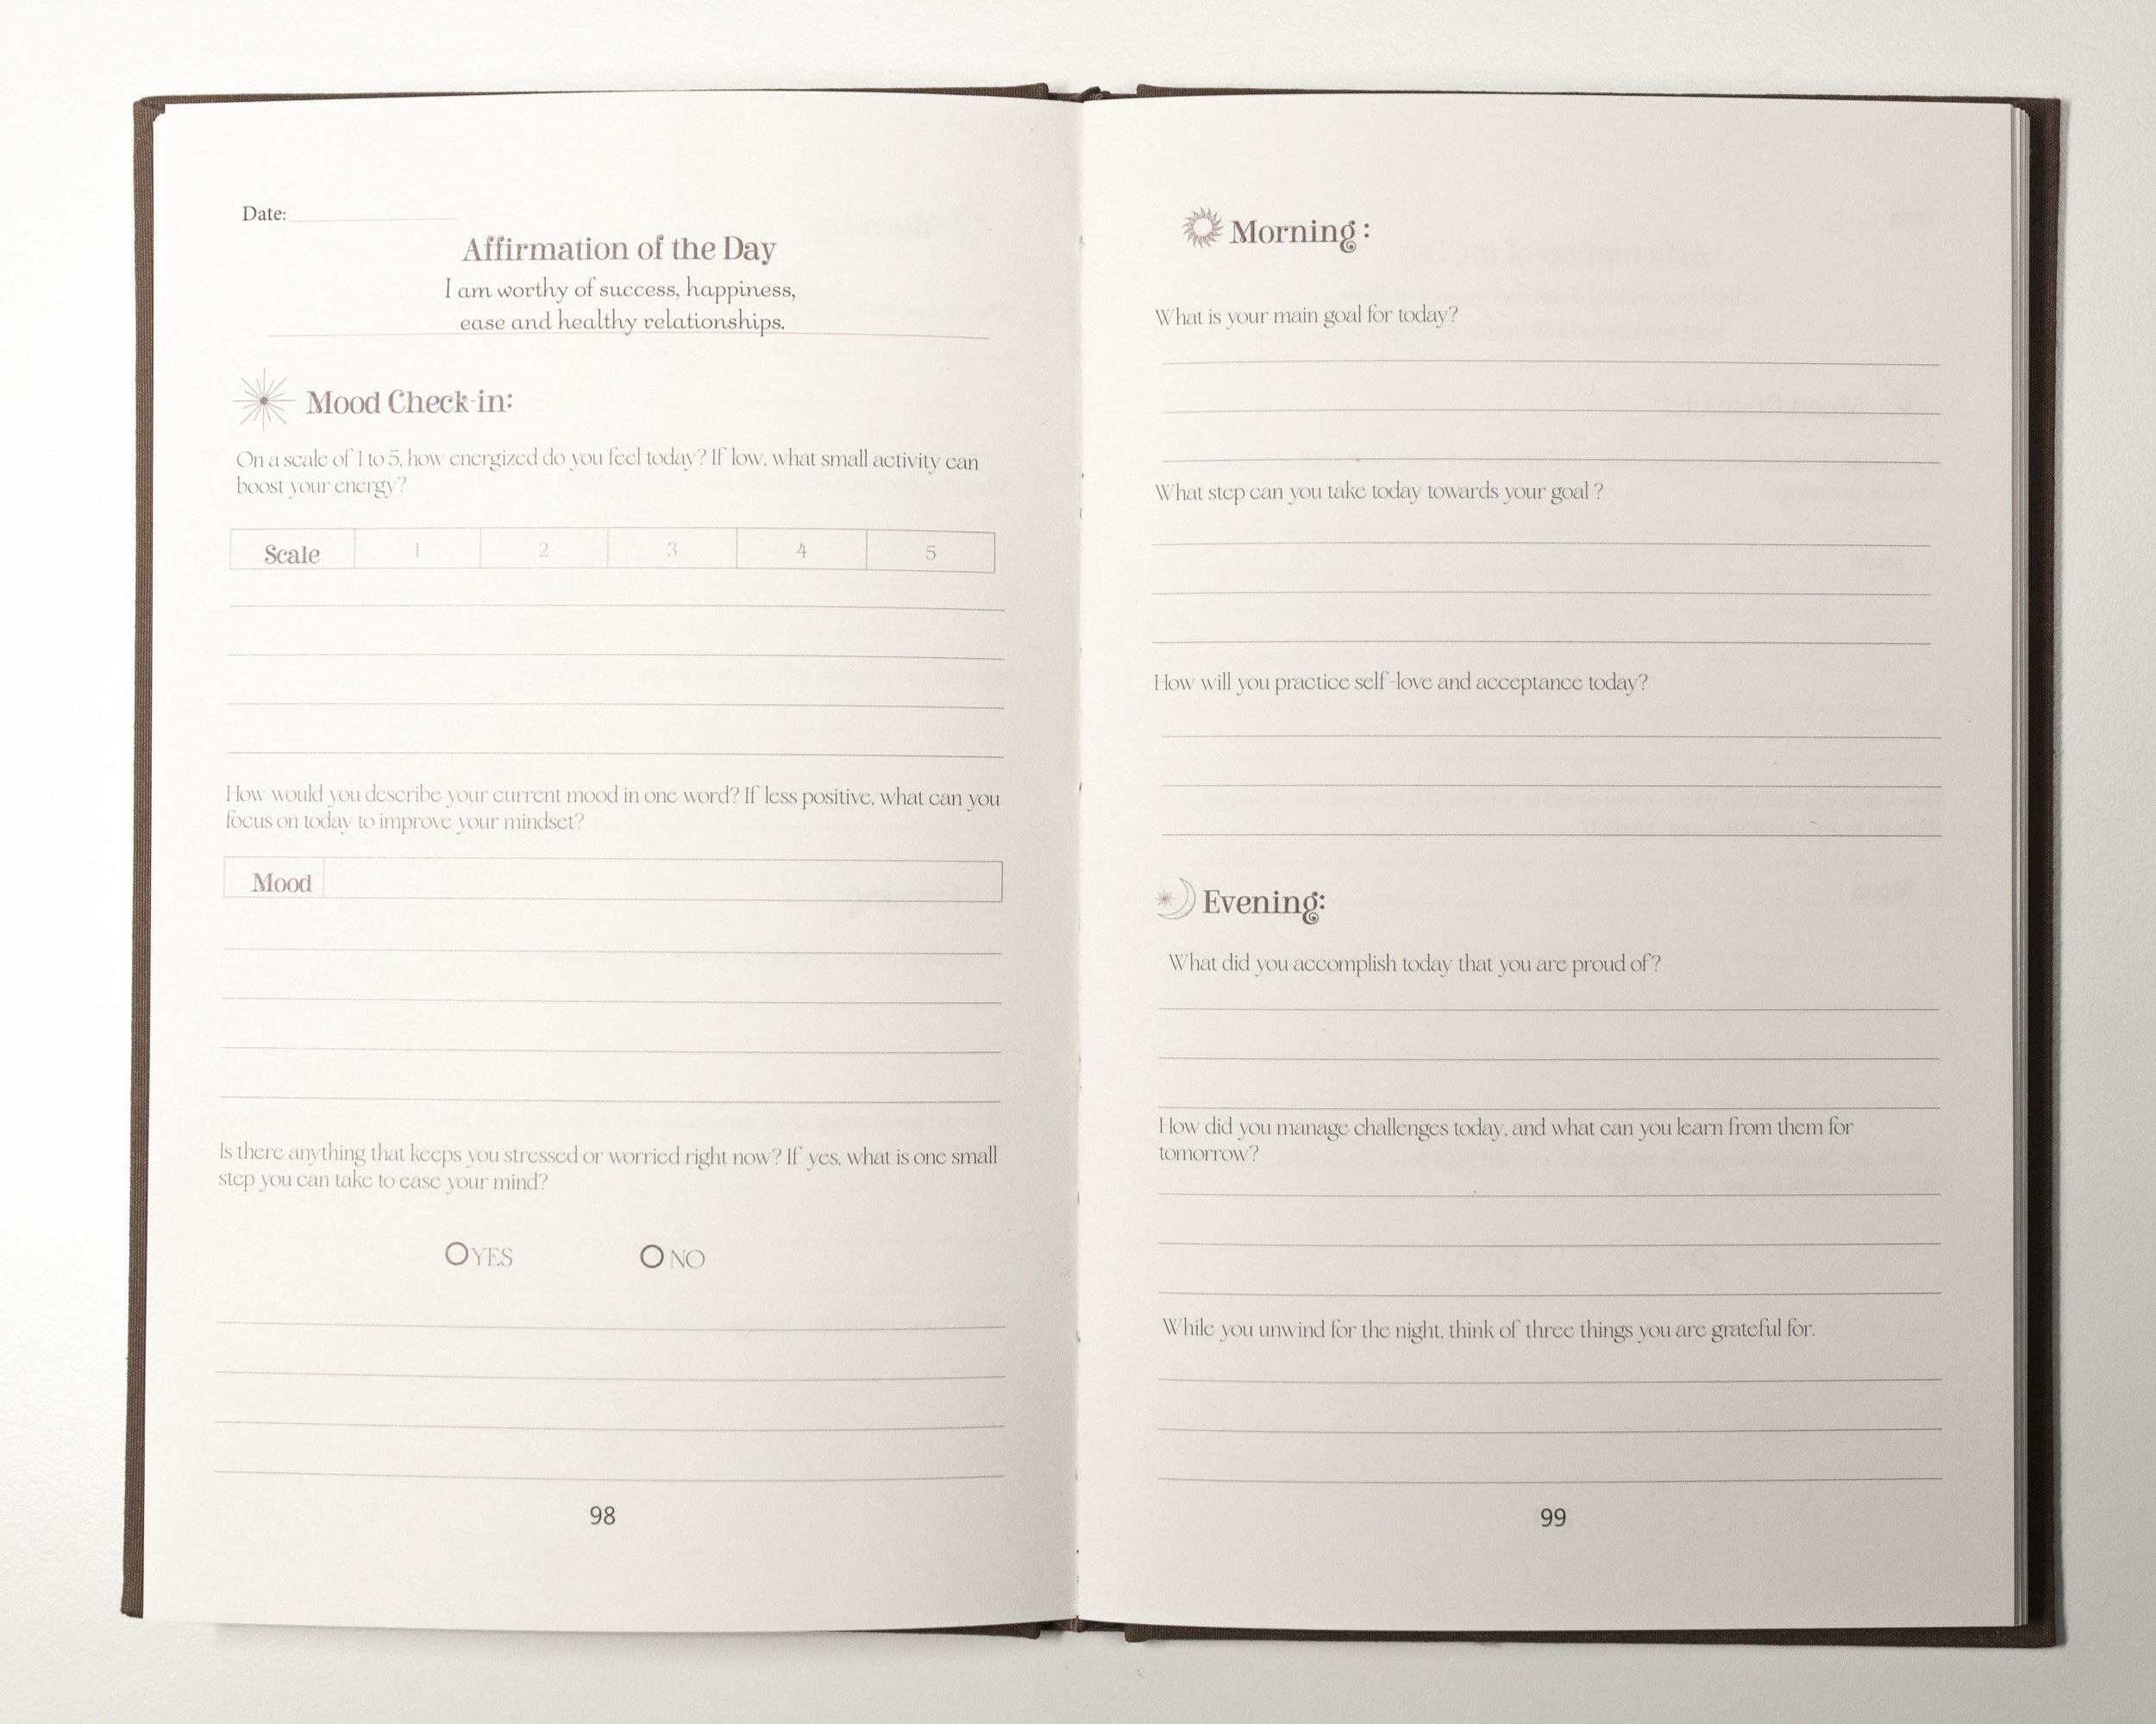 Date:
Affirmation of the Day
I am worthy of success, happiness,
ease and healthy relationships.
Mood Check-in:
On a scale of 1 to 5, how energized do you feel today? If low, what small activity can
boost your energy?
Scale 1 2 3 4 5
How would you describe your current mood in one word? If less positive, what can you
focus on today to improve your mindset?
Mood
Is there anything that keeps you stressed or worried right now? If yes, what is one small
step you can take to ease your mind?
YES NO
98
Morning :
What is your main goal for today?
What step can you take today towards your goal ?
How will you practice self-love and acceptance today?
Evening:
What did you accomplish today that you are proud of?
How did you manage challenges today, and what can you learn from them for
tomorrow?
While you unwind for the night, think of three things you are grateful for.
99